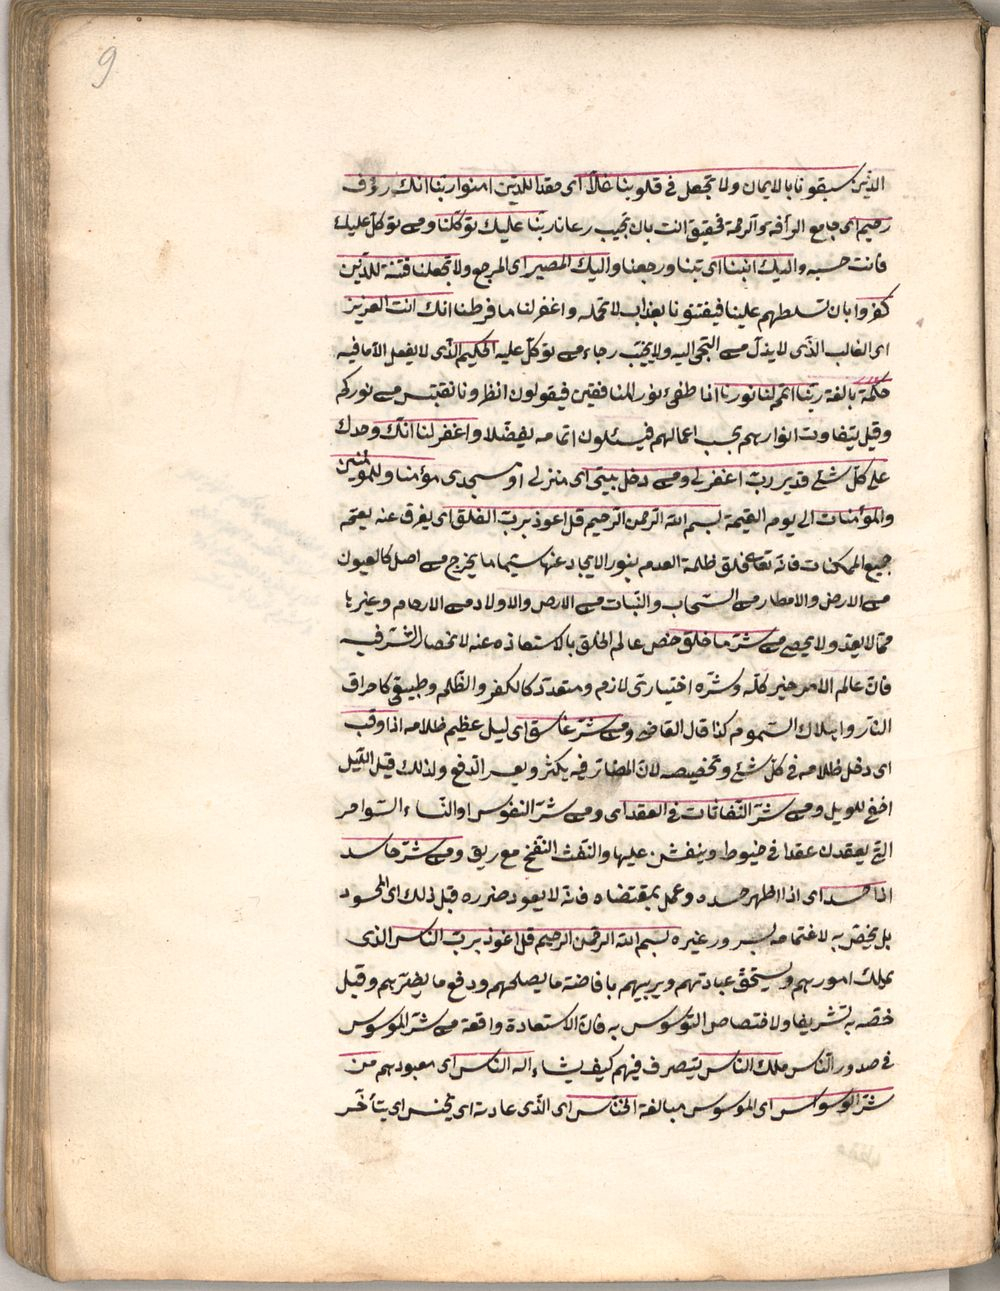 9
الذين سبقونا بالايمان ولا تجعل فى قلوبنا غلّا اى حقدا للذين امنوا ربنا انك رؤف
رحيم اى جامع الرأفة والرحمة فحقيق انت بان تجيب دعانا ربنا عليك توكّلنا ومن توكل عليك
فانت حسبه واليك انبنا اى تبنا ورجعنا واليك المصير اى المرجع ولا تجعلنا فتنة للذين
كفروا بان تسلطهم علينا فيفتنونا بعذاب لا نحمله واغفر لنا ما فرطنا انك انت العزيز
اى الغالب الذى لا يذل من التجى اليه ولا يخيب رجاء من توكل عليه الحكيم الذى لا يفعل الا ما فيه
حكمة بالغة ربنا اتمم لنا نورنا اذا طفئ نور المنافقين فيقولون انظرونا نقتبس من نوركم
وقيل يتفاوت انوارهم بحسب اعمالهم فيسئلون اتمامه تفضّلا واغفر لنا انك وحدك
على كل شئ قدير رب اغفر لى ومن دخل بيتى اى منزلى او مسجدى مؤمنا وللمؤمنين
والمؤمنات الى يوم القيمة بسم الله الرحمن الرحيم قل اعوذ برب الفلق اى يفرق عنه يعمّ
جميع الممكنات فانه تعالى فلق ظلمة العدم بنور الايجاد عنها سيما ما يخرج من اصل كالعيون
من الارض والامطار من السحاب والنبات من الارض والاولاد من الارحام وغيرها
ممّا لا يعدّ ولا يحصى من شر ما خلق خص عالم الخلق بالاستعاذه عنه لانحصار الشر فيه
فان عالم الامر خير كله وشره اختيارى لازم ومتعدّ كالكفر والظلم وطبيعى كاحراق
النار واهلاك السموم كذا قال القاضى ومن شر غاسق اى ليل عظيم ظلامه اذا وقب
اى دخل ظلامه فى كل شئ وتخصيصه لان المضار فيه يكثر ويعسر الدفع ولذلك قيل الليل
اخفى للويل ومن شر النفاثات فى العقد اى ومن شر النفوس او النساء السواحر
التى يعقدن عقدا فى خيوط وينفثن عليها والنفث النفخ مع ريق ومن شر حاسد
اذا حسد اى اذا اظهر حسده وعمل بمقتضاه فانه لا يعود ضرره قبل ذلك اى المحسود
بل يخص به لاغتمامه بسرور غيره بسم الله الرحمن الرحيم قل اعوذ برب الناس الذى
يملك امورهم ويستحق عبادتهم ويربيهم بافاضة ما يصلحهم ودفع ما يضرهم وقيل
خصّه به تشريفا ولاختصاص التوسوس به فان الاستعاذة واقعة من شر الموسوس
فى صدور الناس ملك الناس يتصرف فيهم كيف يشاء اله الناس اى معبودهم من
شر الوسواس اى الموسوس مبالغة الخناس اى الذى عادته اى يخنس اى يتأخر